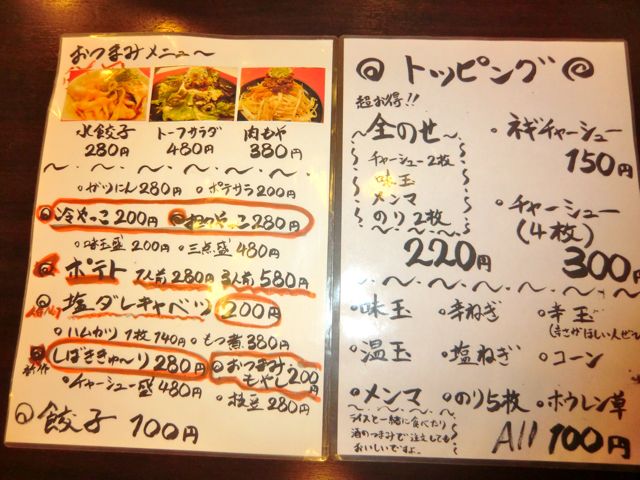 おつまみメニュ～
水餃子 トーフサラダ 肉もや
280円 480円 380円
ガリにん280円 ポテサラ200円
冷やっこ200円 280円
味玉盛200円 三点盛480円
ポテト 1人前280円 3人前580円
塩ダレキャベツ 200円
ハムカツ1枚140円 もつ煮380円
新作 しばききゅ～り280円
おつまみもやし200円
チャーシュー盛480円 枝豆280円
餃子 100円
トッピング
超お得!!
全のせ
チャーシュー2枚
味玉
メンマ
のり2枚
220円
ネギチャーシュー
150円
チャーシュー
(4枚)
300円
味玉 辛ねぎ 辛玉
(辛さがほしい人ぜ
温玉 塩ねぎ コーン
メンマ のり5枚 ホウレン草
ライスと一緒に食べたり
酒のつまみで注文しても
おいしいですよ
All 100円